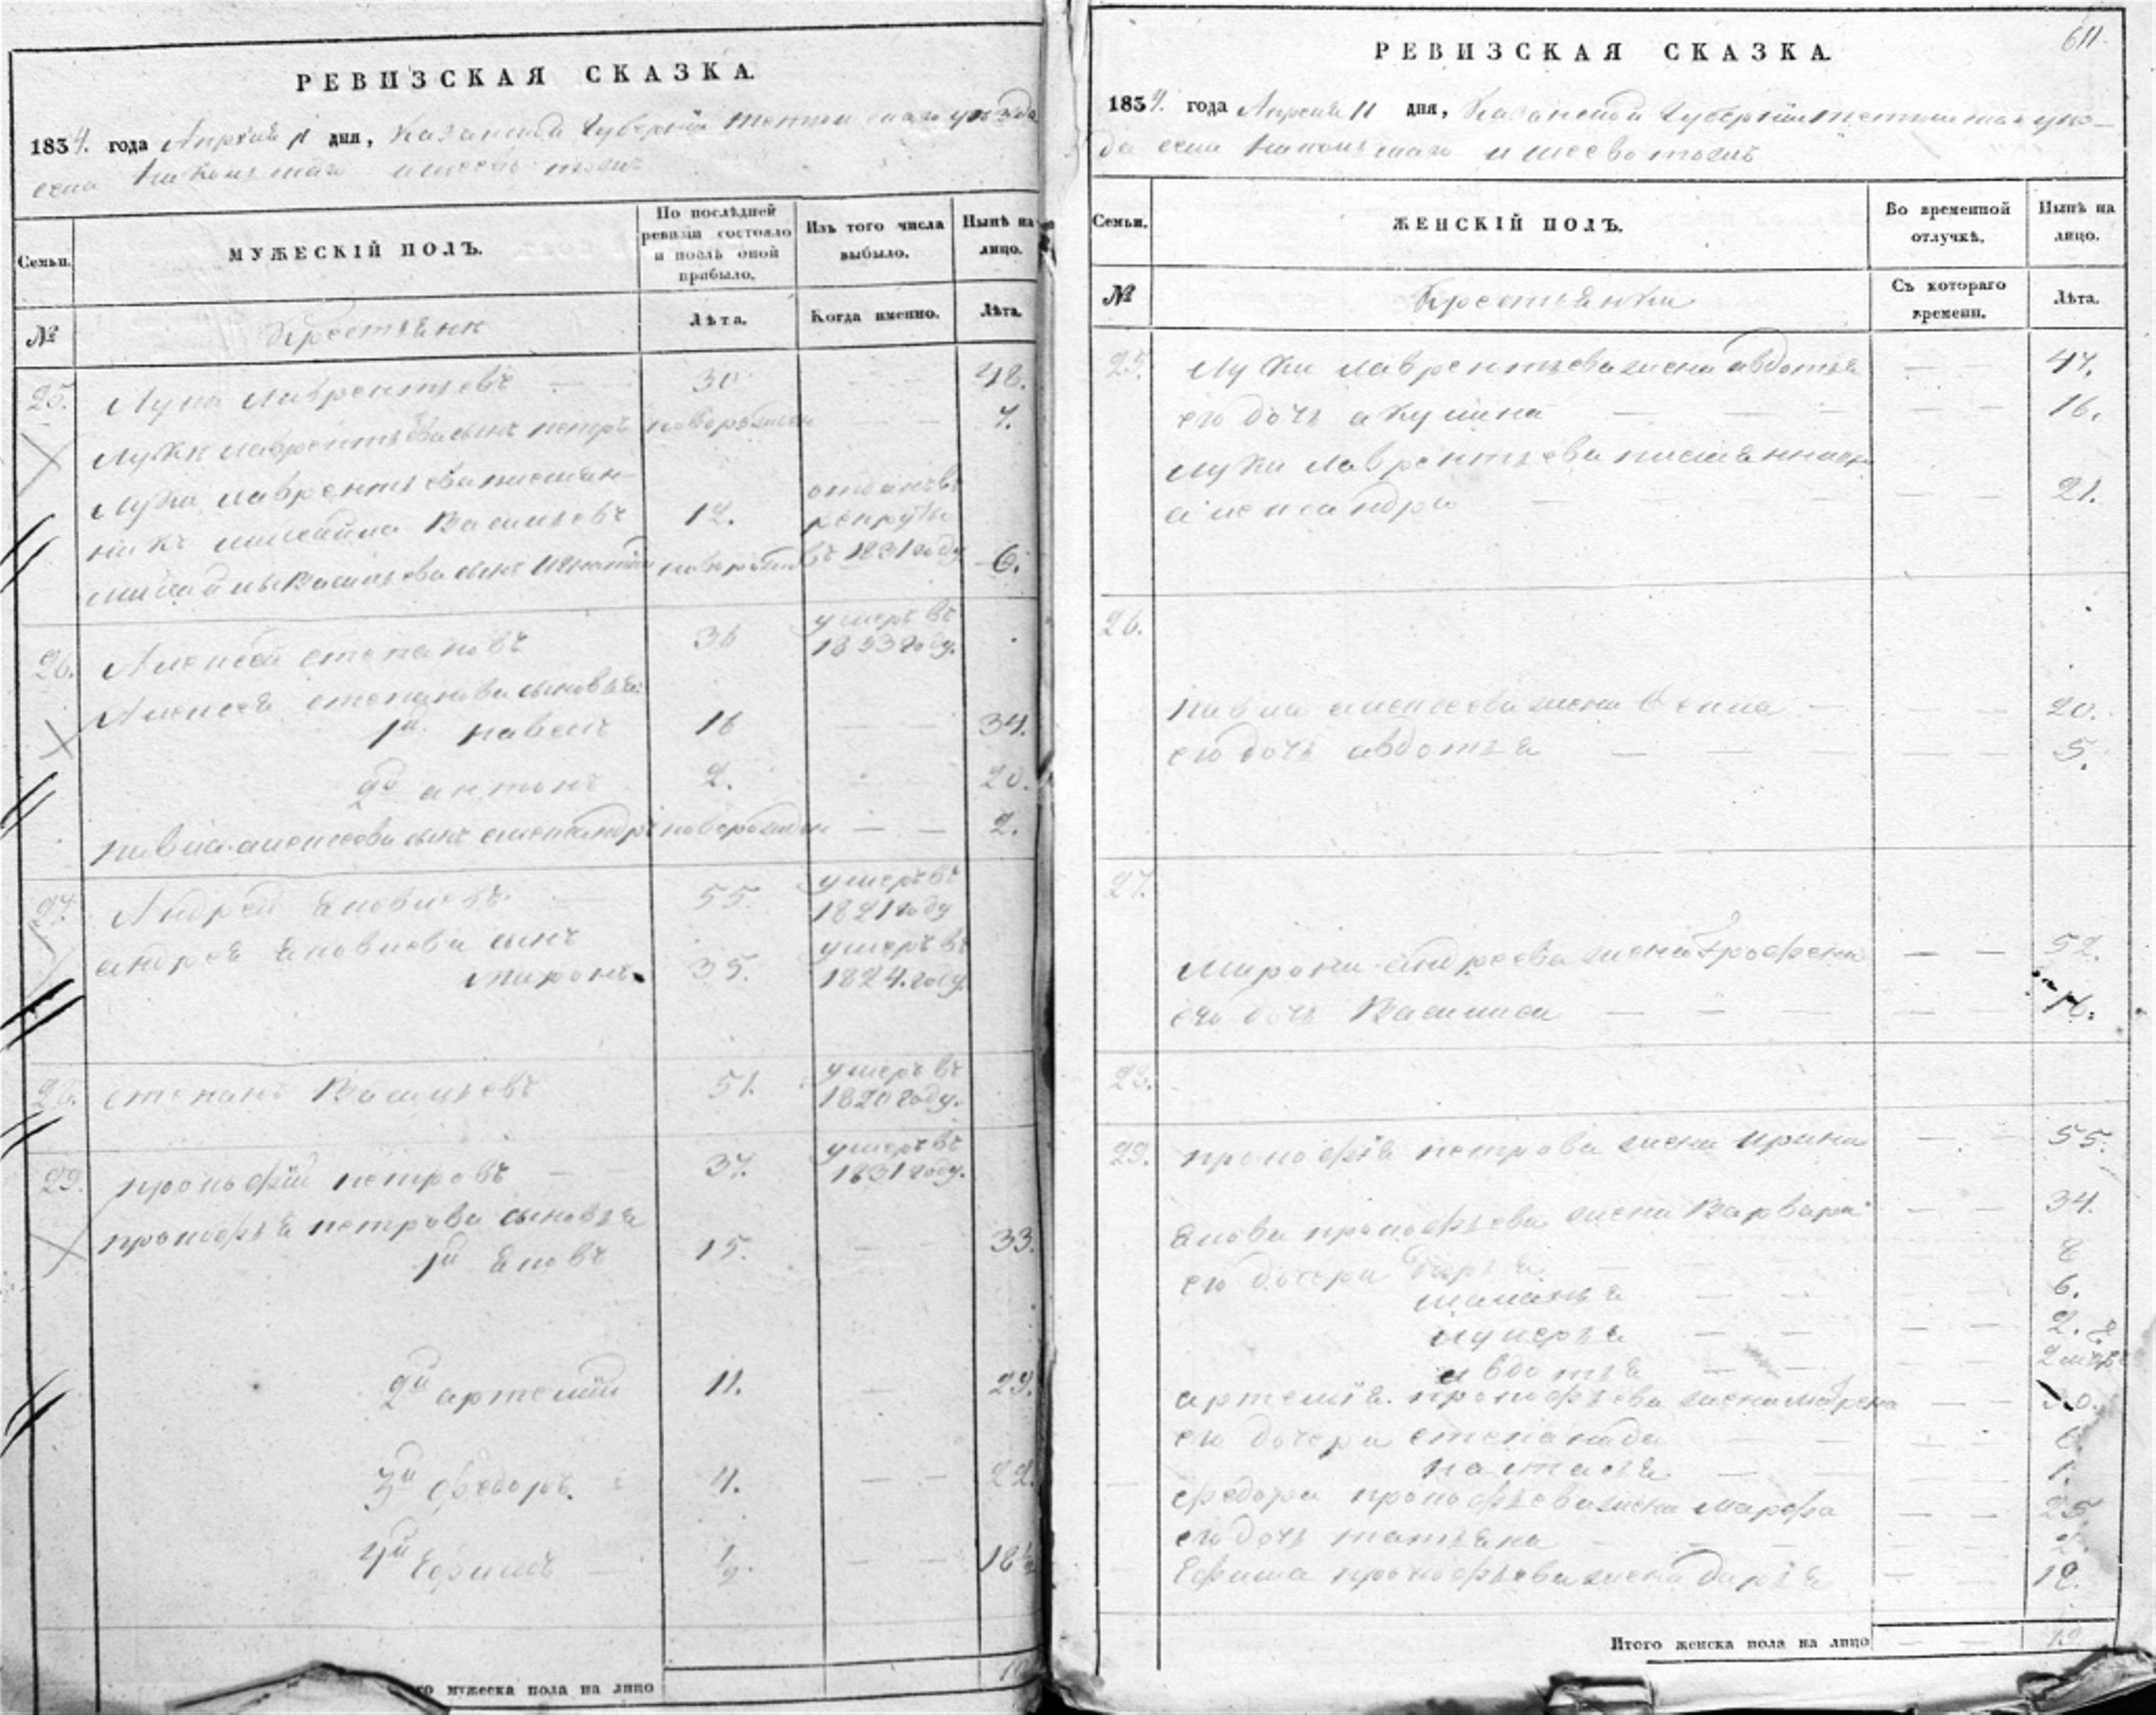 РЕВИЗСКАЯ СКАЗКА.
1834. года Апреля 11 дня, Казанской Губернии уезда
села
Семьи.
МУЖЕСКІЙ ПОЛЪ.
По послѣдней ревизіи состояло и послѣ оной прибыло.
Изъ того числа выбыло.
Нынѣ на лицо.
№
Крестьяне
Лѣта.
Когда именно.
Лѣта.
25. Лука Лаврентьевъ — 30 — — 48.
Луки Лаврентьева сынъ петръ новорожден — — 7.
Луки Лаврентьева племян-
никъ михайла Васильевъ 12. отданъ въ рекруты въ 1831 году
михайлы Васильева сынъ новорожден 6.
26. Алексей степановъ 36 умеръ въ 1833 году.
Алексея степанова сыновья:
1й павелъ 16 — — 34.
2й антонъ 2. — — 20.
павла алексеева сынъ александръ новорожден — — 2.
27. Андрей яковлевъ — 55. умеръ въ 1821 году
андрея яковлева сынъ
миронъ 35. умеръ въ 1824. году.
28. степанъ Васильевъ 51. умеръ въ 1820 году.
29. прокофій петровъ — 37. умеръ въ 1831 году.
прокофья петрова сыновья
1й яковъ 15. — — 33.
2й артемій 11. — 29.
3й федоръ 4. — — 22.
4й Ефимъ — 1/2. — — 18 1/2
го мужеска пола на лицо
611.
РЕВИЗСКАЯ СКАЗКА.
1834. года Апреля 11 дня, Казанской Губернии уез-
да села
Семьи.
ЖЕНСКІЙ ПОЛЪ.
Во временной отлучкѣ.
Нынѣ на лицо.
№
Крестьянки
Съ котораго времени.
Лѣта.
25. Луки Лаврентьева жена авдотья — — 47.
его дочь акулина — — — 16.
Луки Лаврентьева племянника
— — — 21.
26.
павла алексеева жена — — — 20.
его дочь авдотья — — — 5.
27.
мирона андреева жена — — 52.
его дочь Василиса — — —
28.
29. прокофія петрова жена ирина — — 55.
якова прокофьева жена Варвара — — 34.
его дочери дарья — — 8
маланья — — 6.
лукерья — — 2.
авдотья — —
артемія прокофьева жена — —
его дочери степанида — —
настасья — — 1.
федора прокофьева жена марфа — — 25
его дочь татьяна — — 2.
Ефима прокофьева жена дарья — —
Итого женска пола на лицо